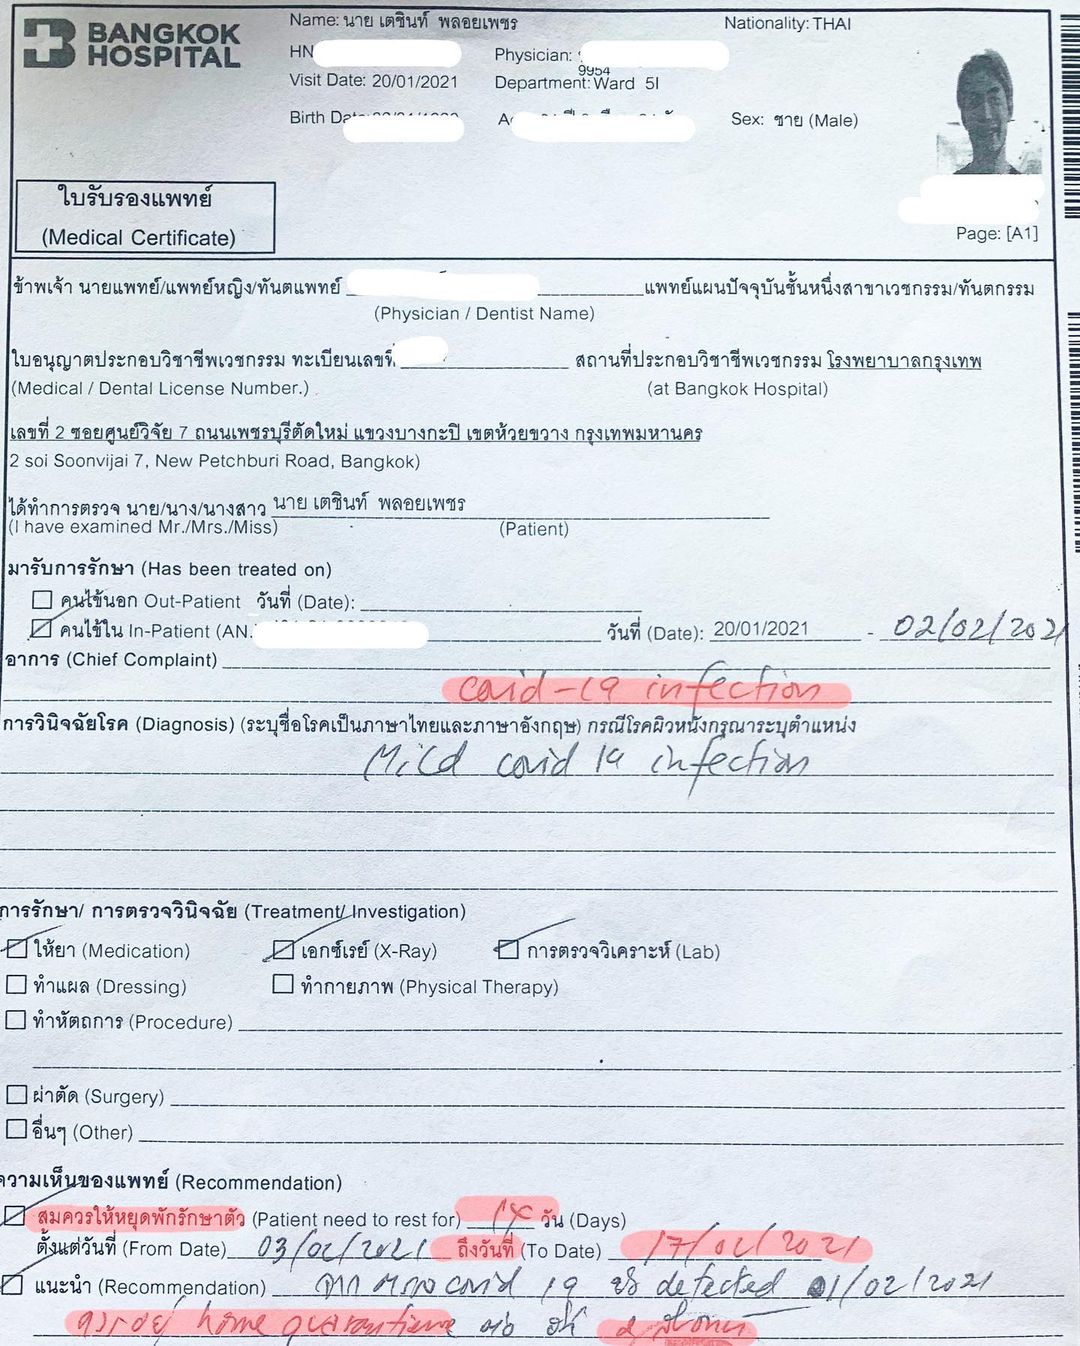 BANGKOK HOSPITAL
Name: นาย เตชินท์ พลอยเพชร Nationality: THAI
HN Physician:
9954
Visit Date: 20/01/2021 Department: Ward 5I
Birth Date Sex: ชาย (Male)
ใบรับรองแพทย์
(Medical Certificate)
Page: [A1]
ข้าพเจ้า นายแพทย์/แพทย์หญิง/ทันตแพทย์ แพทย์แผนปัจจุบันชั้นหนึ่งสาขาเวชกรรม/ทันตกรรม
(Physician / Dentist Name)
ใบอนุญาตประกอบวิชาชีพเวชกรรม ทะเบียนเลขที่ สถานที่ประกอบวิชาชีพเวชกรรม โรงพยาบาลกรุงเทพ
(Medical / Dental License Number.) (at Bangkok Hospital)
เลขที่ 2 ซอยศูนย์วิจัย 7 ถนนเพชรบุรีตัดใหม่ แขวงบางกะปิ เขตห้วยขวาง กรุงเทพมหานคร
2 soi Soonvijai 7, New Petchburi Road, Bangkok)
ได้ทำการตรวจ นาย/นาง/นางสาว นาย เตชินท์ พลอยเพชร
(I have examined Mr./Mrs./Miss) (Patient)
มารับการรักษา (Has been treated on)
คนไข้นอก Out-Patient วันที่ (Date):
คนไข้ใน In-Patient (AN. วันที่ (Date): 20/01/2021 - 02/02/2021
อาการ (Chief Complaint)
covid-19 infection
การวินิจฉัยโรค (Diagnosis) (ระบุชื่อโรคเป็นภาษาไทยและภาษาอังกฤษ) กรณีโรคผิวหนังกรุณาระบุตำแหน่ง
Mild covid 19 infection
การรักษา/ การตรวจวินิจฉัย (Treatment/ Investigation)
ให้ยา (Medication) เอกซ์เรย์ (X-Ray) การตรวจวิเคราะห์ (Lab)
ทำแผล (Dressing) ทำกายภาพ (Physical Therapy)
ทำหัตถการ (Procedure)
ผ่าตัด (Surgery)
อื่นๆ (Other)
ความเห็นของแพทย์ (Recommendation)
สมควรให้หยุดพักรักษาตัว (Patient need to rest for) 14 วัน (Days)
ตั้งแต่วันที่ (From Date) 03/02/2021 ถึงวันที่ (To Date) 17/02/2021
แนะนำ (Recommendation) covid 19 detected 01/02/2021
ควรอยู่ home quarantine